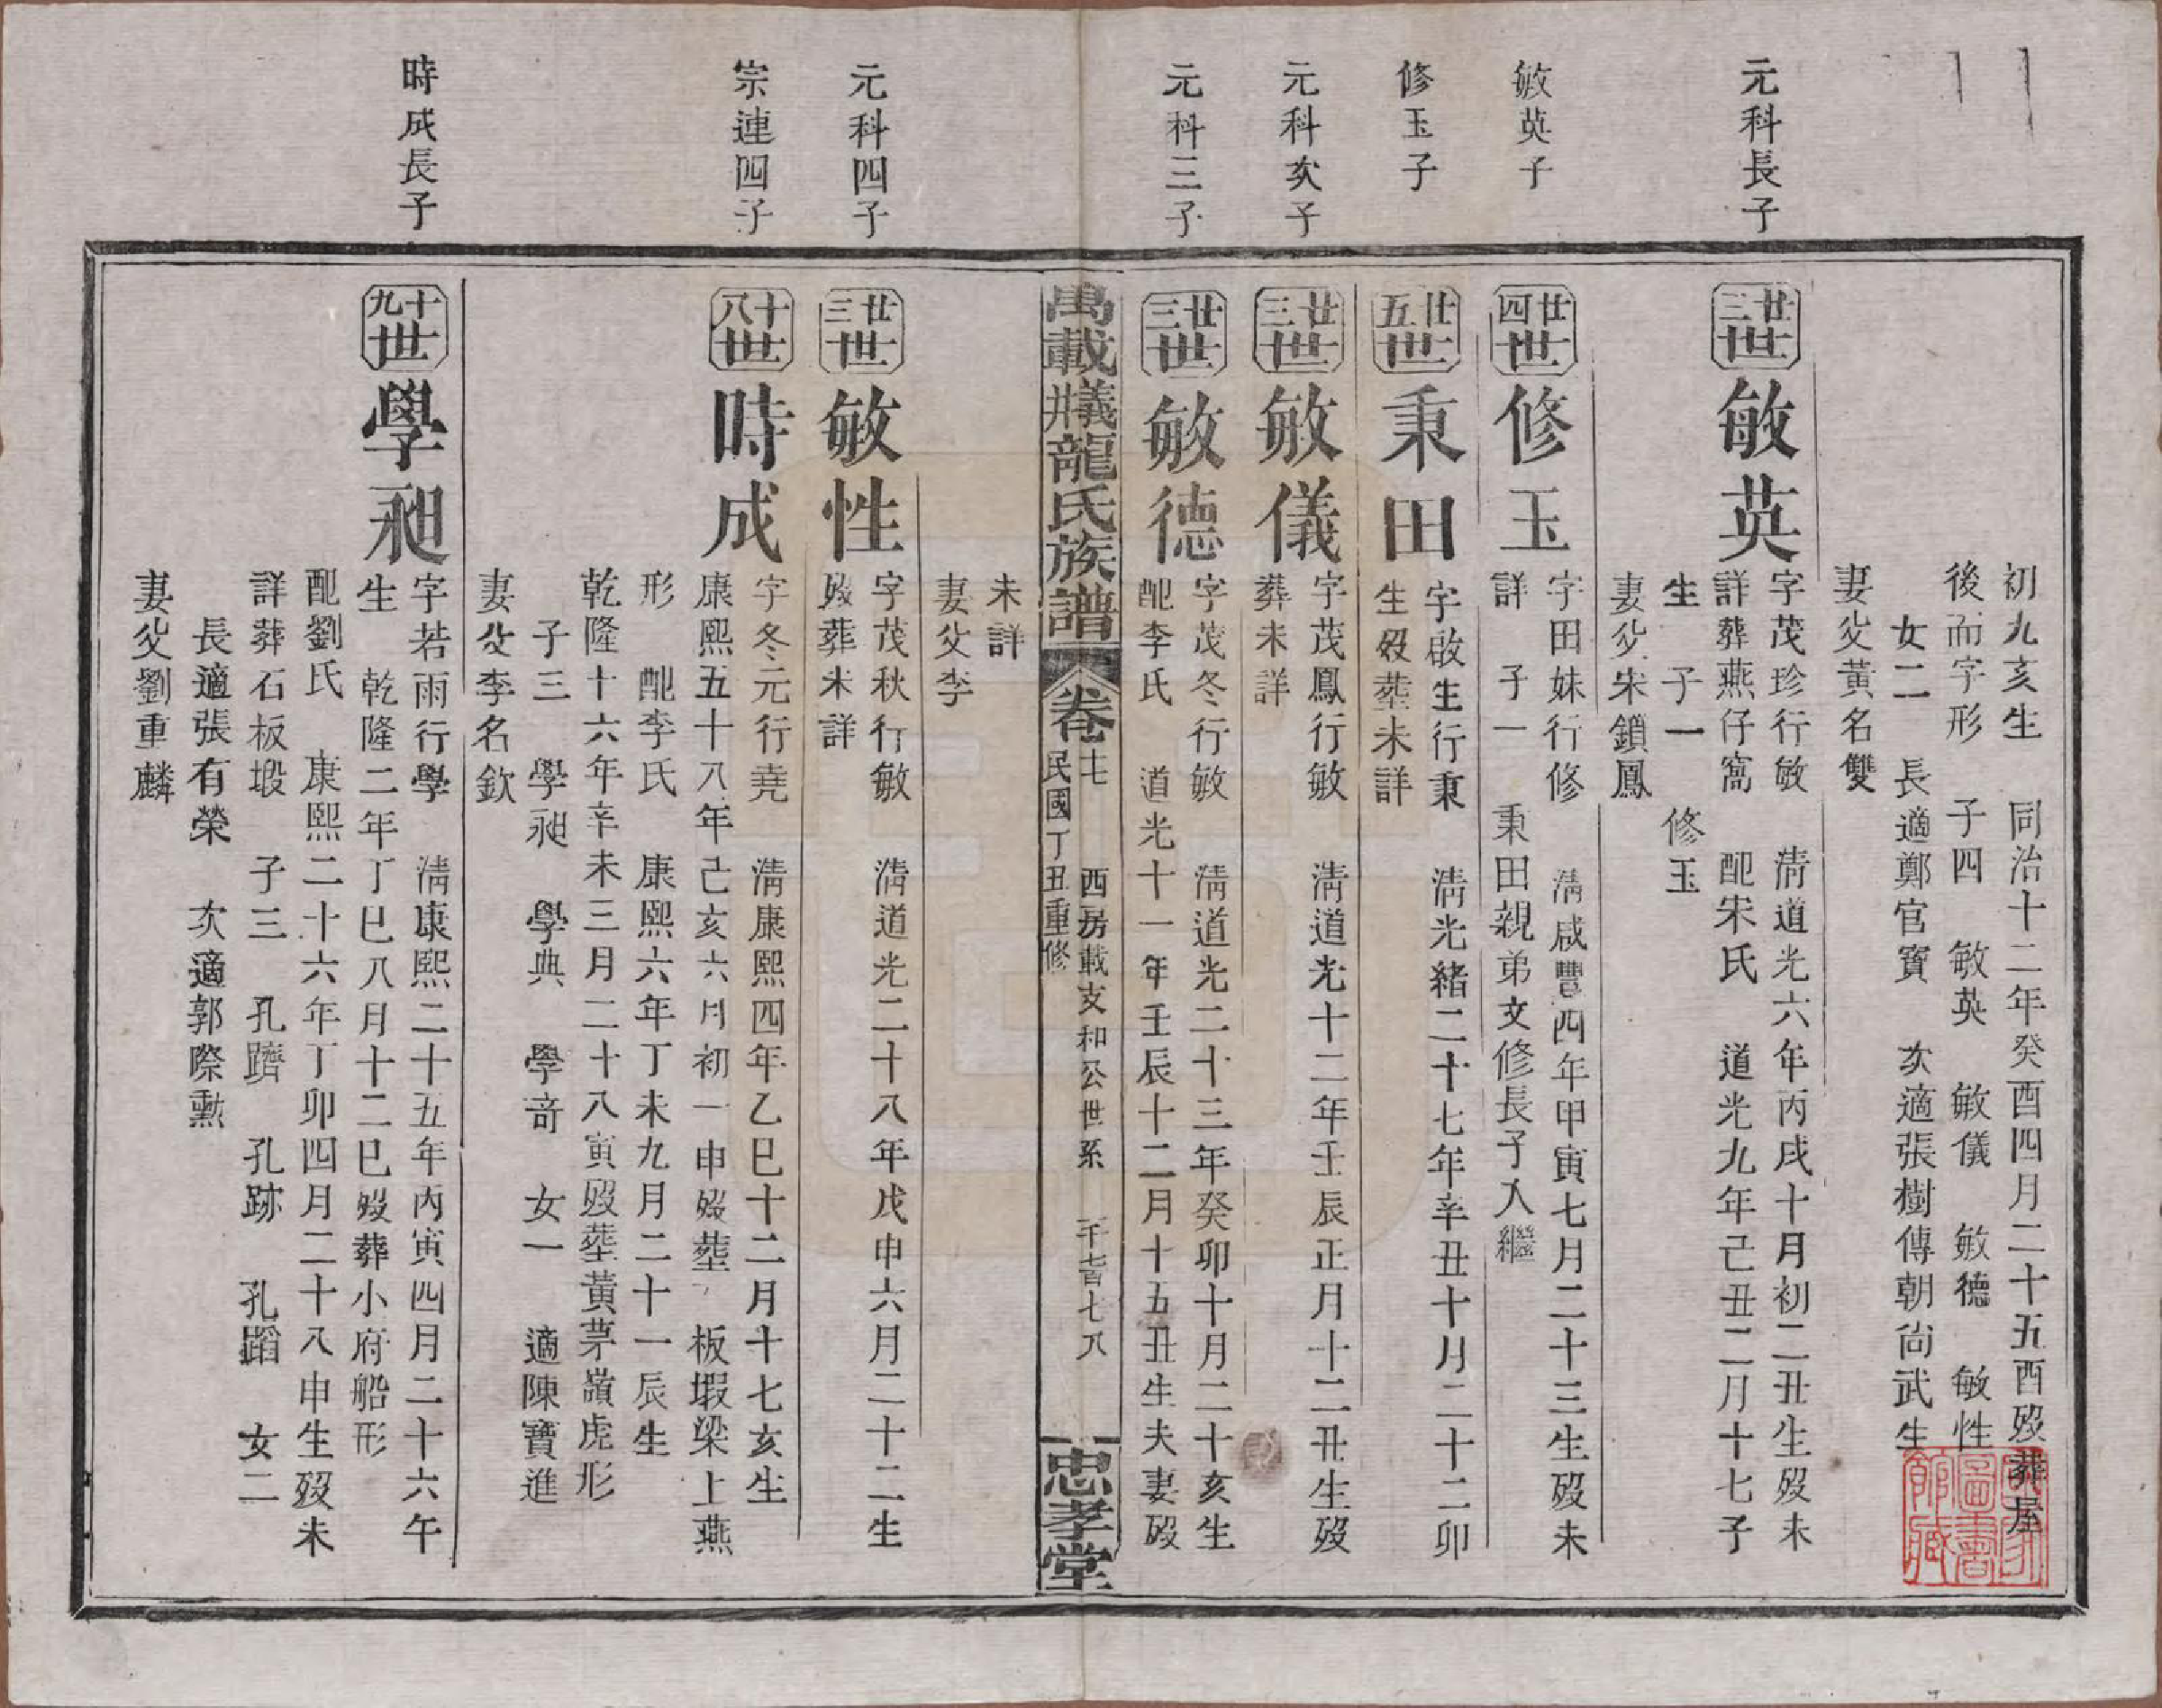 初九亥生　同治十二年癸酉四月二十五酉歿葬屋
後而字形　子四　敏英　敏儀　敏德　敏性
女二　長適鄭官寶　次適張樹傳朝尙武生
妻父黃名雙
元科長子
廿三世
敏英
字茂珍行敏　淸道光六年丙戌十月初二丑生歿未
詳葬燕仔窩　配宋氏　道光九年己丑二月十七子
生　子一　修玉
妻父宋鎖鳳
敏英子
廿四世
修玉
字田妹行修　淸咸豐四年甲寅七月二十三生歿未
詳　子一　秉田親弟文修長子入繼
修玉子
廿五世
秉田
字啟生行秉　淸光緒二十七年辛丑十月二十二卯
生歿塟未詳
元科次子
廿三世
敏儀
字茂鳳行敏　淸道光十二年壬辰正月十二丑生歿
葬未詳
元科三子
廿三世
敏德
字茂冬行敏　淸道光二十三年癸卯十月二十亥生
配李氏　道光十一年壬辰十二月十五丑生夫妻歿
萬載㸢龍氏族譜
卷十七
民國丁丑重修
西房載支和公世系　千七百七八
忠孝堂
未詳
妻父李
元科四子
廿三世
敏性
字茂秋行敏　淸道光二十八年戊申六月二十二生
歿葬未詳
宗連四子
十八世
時成
字冬元行堯　淸康熙四年乙巳十二月十七亥生
康熙五十八年己亥六月初一申歿塟　板塅梁上燕
形　配李氏　康熙六年丁未九月二十一辰生
乾隆十六年辛未三月二十八寅歿塟黃茅嶺虎形
子三　學昶　學典　學竒　女一　適陳寶進
妻父李名欽
時成長子
十九世
學昶
字若雨行學　淸康熙二十五年丙寅四月二十六午
生　乾隆二年丁巳八月十二巳歿葬小府船形
配劉氏　康熙二十六年丁卯四月二十八申生歿未
詳葬石板塅　子三　孔躋　孔跡　孔蹈　女二
長適張有榮　次適郭際勳
妻父劉重麟